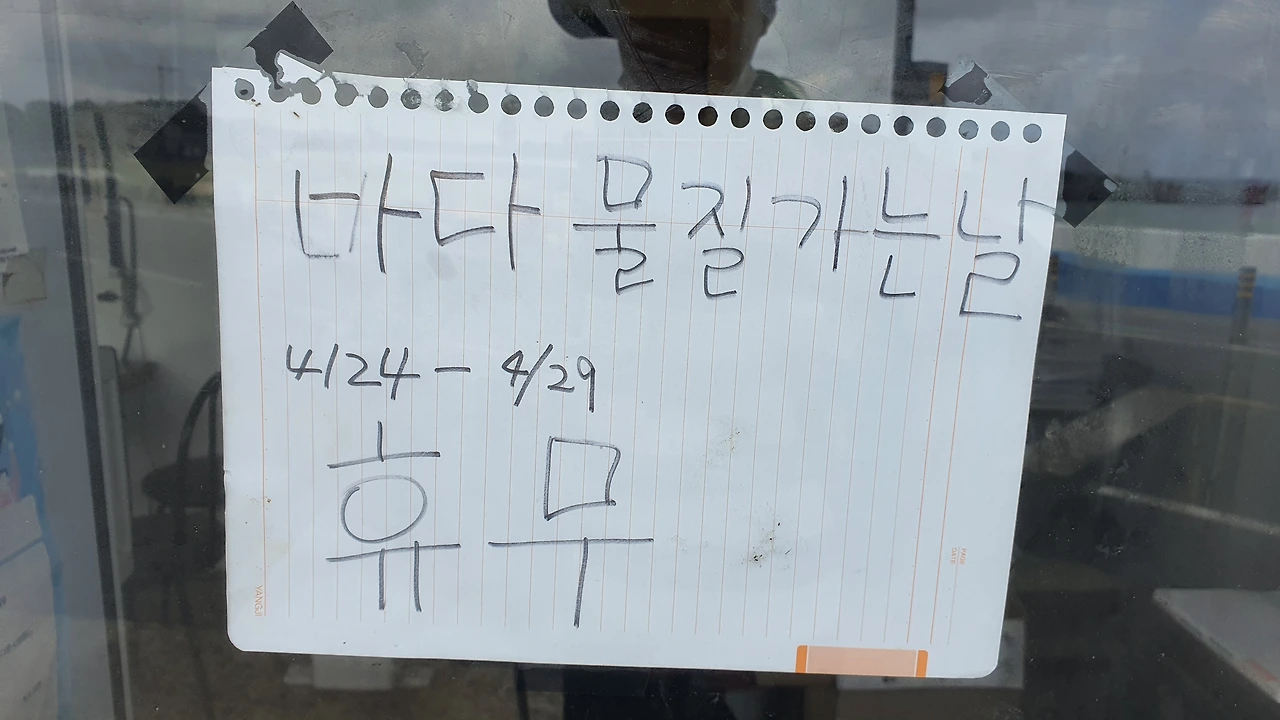 바다 물질가는날
4/24 - 4/29
휴무
YANGJI
PAGE
DATE